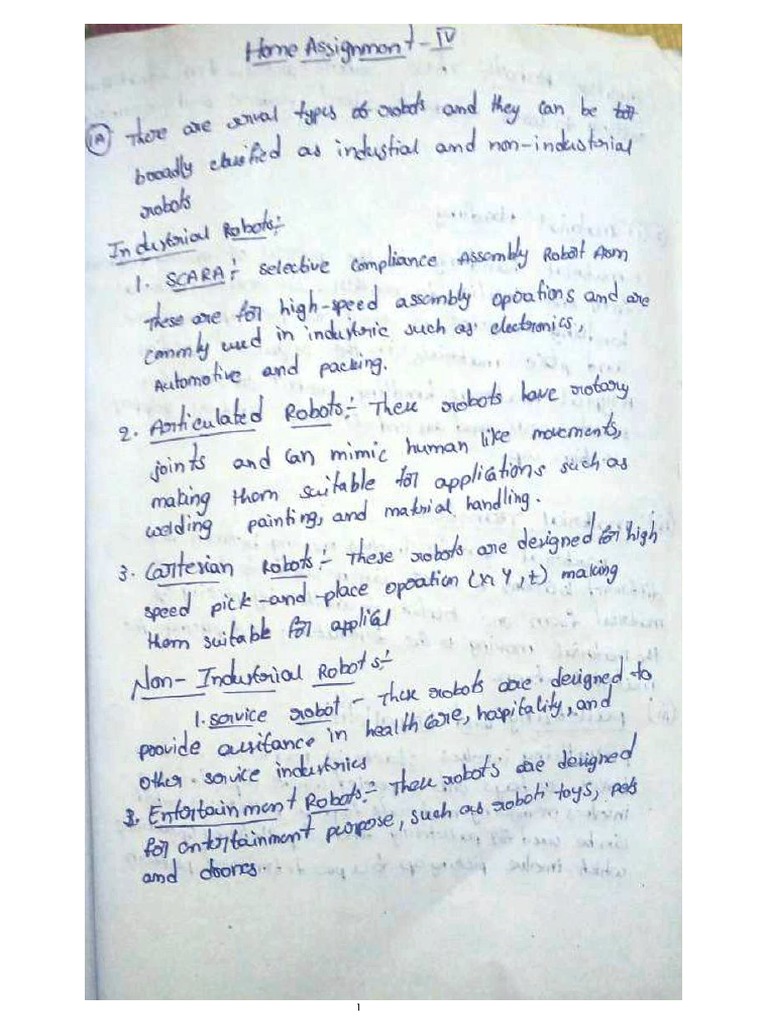 Home Assignment - IV
1A) There are serval types of robots and they can be
broadly classified as industial and non-industorial
robots
Industrial Robots:-
1. SCARA:- selective compliance Assembly Robot Arm
These are for high-speed assembly oprations and are
commly used in industric such as electronics,
Automotive and packing.
2. Articulated Robots:- These robots have rotary
joints and can mimic human like movements,
making them suitable for applications such as
welding painting, and matrial handling.
3. Cartesian Robots:- These robots are designed for high
speed pick-and-place opration (x, y, t) making
them suitable for applicat
Non-Industrial Robots:-
1. service robot - These robots are designed to
provide assitance in health care, hospitality, and
other service industries
3. Entertainment Robots:- These robots are designed
for entertainment purpose, such as roboti toys, pets
and drones.
1